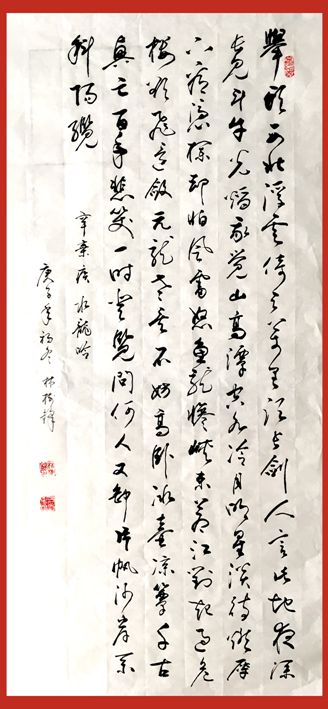 舉頭西北浮雲倚天萬里須長劍人言此地夜深
長見斗牛光焰我覺山高潭空水冷月明星淡待燃犀
下看憑欄却怕風雷怒魚龍慘峽束蒼江對起過危
樓欲飛還斂元龍老矣不妨高卧冰壺涼簟千古
興亡百年悲笑一時登覽問何人又卸片帆沙岸系
斜陽纜
辛棄疾水龍吟
庚子年初冬林